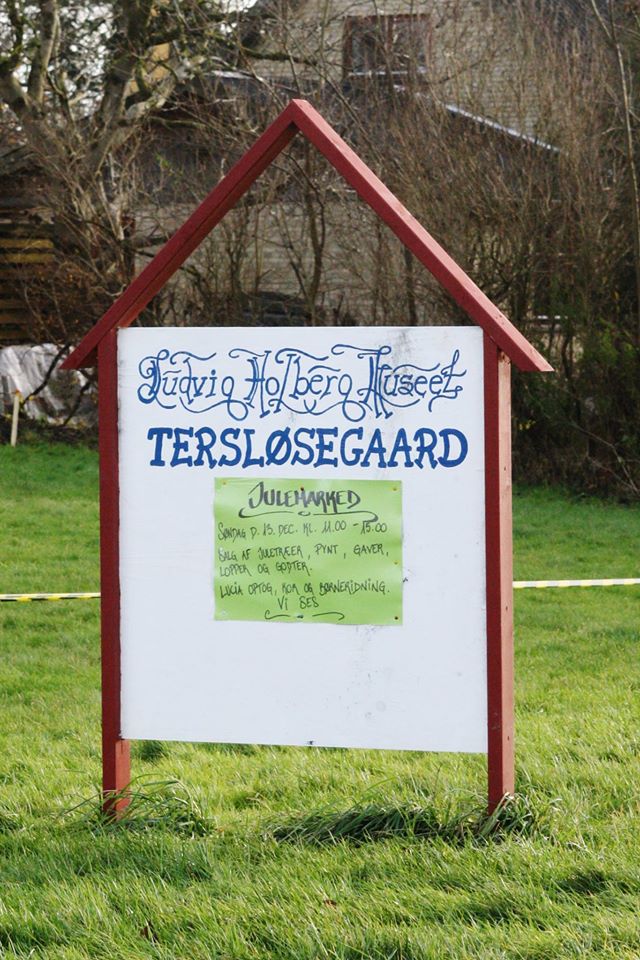 Ludvig Holberg Museet
TERSLØSEGAARD
JULEMARKED
SØNDAG D. 15. DEC. KL. 11.00 - 15.00
SALG AF JULETRÆER, PYNT, GAVER,
LOPPER OG GODTER.
LUCIA OPTOG, KOR OG BØRNERIDNING.
VI SES